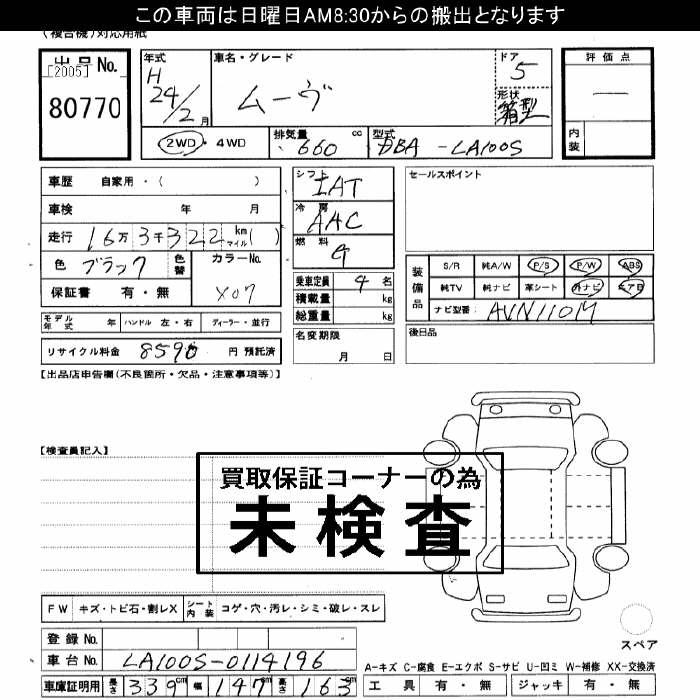 この車両は日曜日AM8:30からの搬出となります
(複合機)対応用紙
出品No.
[2005]
80770
年式
H
24/2月
車名・グレード
ムーヴ
ドア
5
形状
箱型
評価点
—
内装
2WD・4WD
排気量
660 cc
型式
DBA-LA100S
車歴 自家用・( )
車検 年 月
走行 16万3千322 km マイル( )
色 ブラック 色替
カラーNo.
X07
保証書 有・無
シフト
IAT
冷房
AAC
燃料
G
乗車定員 4 名
積載量 kg
総重量 kg
セールスポイント
装備品
S/R 純A/W P/S P/W ABS
純TV 純ナビ 革シート 外ナビ エアB
ナビ型番: AVN110M
モデル年式 年 ハンドル 左・右 ディーラー・並行
リサイクル料金 8590 円 預託済
名変期限
月 日
後日品
【出品店申告欄(不良箇所・欠品・注意事項等)】
【検査員記入】
買取保証コーナーの為
未検査
FW キズ・トビ石・割レX シート内装 コゲ・穴・汚レ・シミ・破レ・スレ
スペア
登録No.
車台No. LA100S-0114196
A-キズ C-腐食 E-エクボ S-サビ U-凹ミ W-補修 XX-交換済
車庫証明用 長さ 339cm 幅 147cm 高さ 163cm
工具 有・無 ジャッキ 有・無